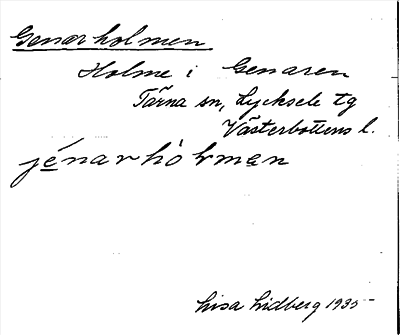 Genarholmen
Holme i Genaren
Tärna sn, Lycksele tg
Västerbottens l.
jénarhòlmen
Lisa Lidberg 1935